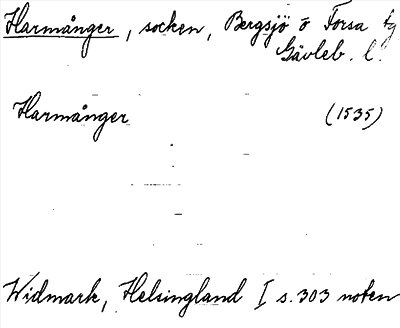 Harmånger, socken, Bergsjö o Forsa tg
Gävleb. l.
Harmånger (1535)
Widmark, Helsingland I s. 303 noten